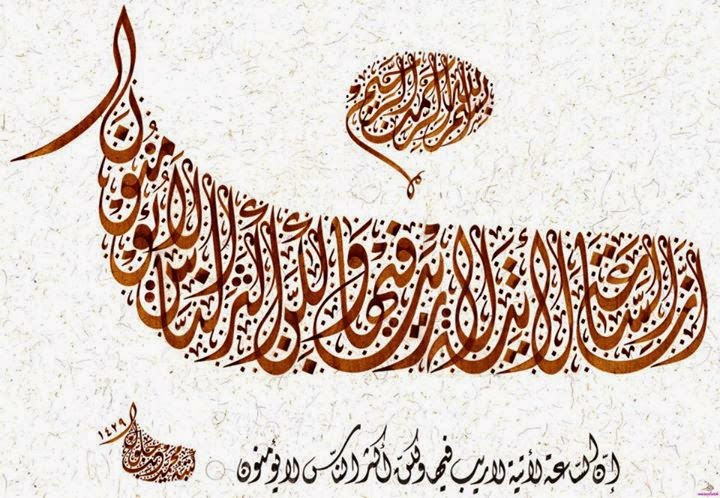 بسم الله الرحمن الرحيم
إن الساعة لآتية لا ريب فيها ولكن أكثر الناس لا يؤمنون
إن الساعة لآتية لا ريب فيها ولكن أكثر الناس لا يؤمنون
١٤٢٩